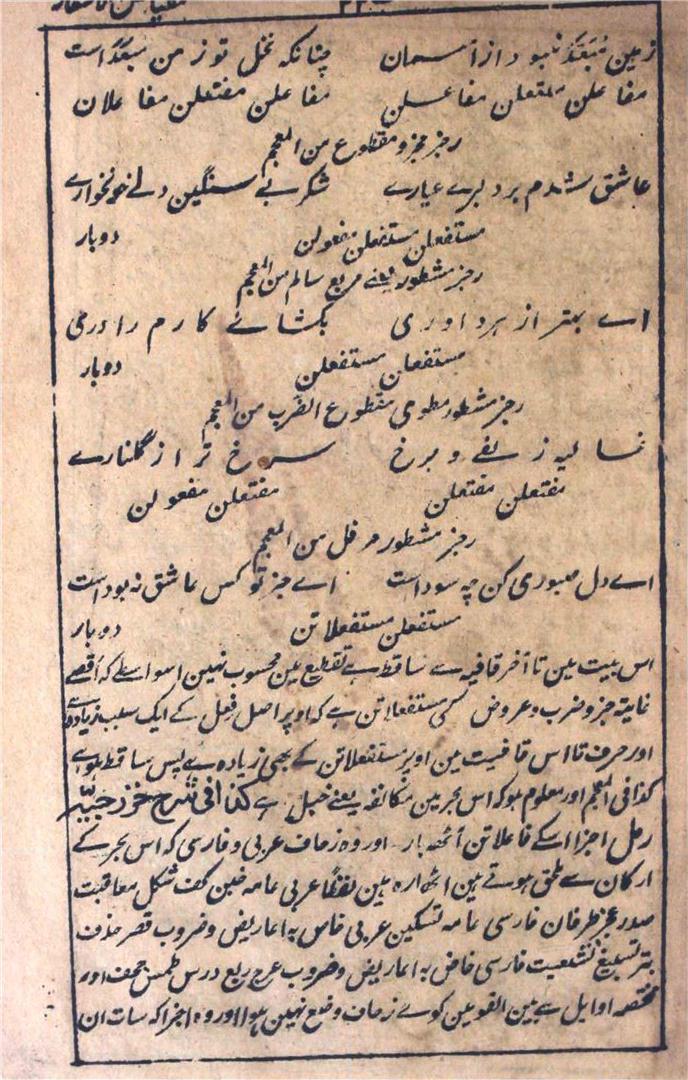 زمین مُبَعَّد نبود از آسمان چنانکہ بخل تو ز من مبعَّد است
مفاعلن مفتعلن مفاعلن مفاعلن مفتعلن مفاعلان
رجز مجزو مقطوع من المعجم
عاشق شدم بر دلبرے عیارے شکر لبے سنگین دلے خونخوارے
مستفعلن مستفعلن مفعولن دوبار
رجز مشطور یعنے مربع سالم من المعجم
اے بہتر از ہر داوری بکشاے کارم را درمی
مستفعلن مستفعلن دوبار
رجز مشطور مطوی مقطوع الضرب من المعجم
غالیہ زلفے و برخ سرخ تر از گلنارے
مفتعلن مفتعلن مفتعلن مفعولن
رجز مشطور مرفل من المعجم
اے دل صبوری کن چہ سود است اے جز تو کس عاشق نہ بود است
مستفعلن مستفعلاتن دوبار
اس بیت مین تا آخر قافیہ سے ساقط ہے تقطیع مین محسوب نہین اسواسطے کہ اقصے
غایتہ جزو ضرب و عروض کی مستفعلاتن ہے کہ اوپر اصل فعل کے ایک سبب زیادہ ہے
اور حرف تا اس قافیت مین اوپر مستفعلاتن کے بھی زیادہ ہے پس ساقط ہوا ہے
کذا فی المعجم اور معلوم ہو کہ اس بحر مین مکانفہ یعنے خبل ہے کذا فی شرح خزرجیہ
رمل اجزا اسکے فاعلاتن آٹھ بار اور وہ زحاف عربی و فارسی کہ اس بحر کے
ارکان سے ملحق ہوتے ہین اٹھارہ ہین لفظاً عربی عامہ خبن کف شکل معاقبت
صدر عجز طرفان فارسی عامہ تسکین عربی خاص بہ اعاریض و ضروب قصر حذف
بتر تسبیغ تشعیث فارسی خاص بہ اعاریض و ضروب عرج ربع درس طمس جحف اور
مختصہ اوایل ہے بین القومین کوے زحاف وضع نہین ہوا اور وہ اجزا کہ سات ان